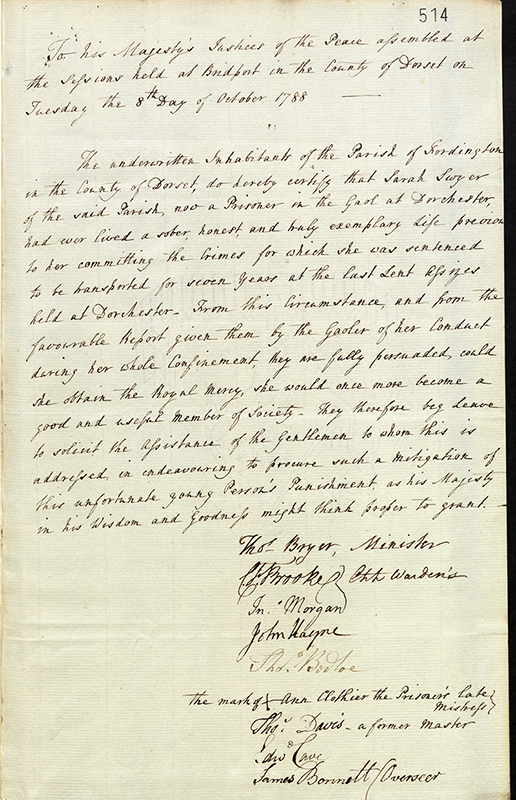 514
To his Majesty's Justices of the Peace assembled at
the Sessions held at Bridport in the County of Dorset on
Tuesday the 8th Day of October 1788 —
The underwritten Inhabitants of the Parish of Fordington
in the County of Dorset, do hereby certify that Sarah Swyer
of the said Parish, now a Prisoner in the Gaol at Dorchester,
had ever lived a sober, honest and truly exemplary Life previous
to her committing the Crimes for which she was sentenced
to be transported for seven Years at the last Lent Assizes
held at Dorchester – From this Circumstance, and from the
favourable Report given them by the Gaoler of her Conduct
during her whole Confinement, they are fully persuaded, could
she obtain the Royal Mercy, she would once more become a
good and useful Member of Society – They therefore beg Leave
to solicit the Assistance of the Gentlemen to whom this is
addressed, in endeavouring to procure such a Mitigation of
this unfortunate young Person's Punishment as his Majesty
in his Wisdom and Goodness might think proper to grant. —
Thos. Bryer, Minister
Brooke Chh Warden's
Jno. Morgan
John Hayne
Thos.
the mark of X Ann Clothier the Prisoner's late
Mistress
Thos. Davis – a former Master
Edwd Cave
James Bonnett Overseer